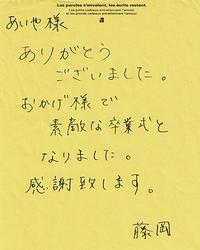 Les paroles s'envolent, les écrits restent.
Les petits cadeaux entretiennent l'amitié,
et les grands cadeaux entretiennent l'amour!
あいや様
ありがとう
ございました。
おかげ様で
素敵な卒業式と
なりました。
感謝致します。
藤岡